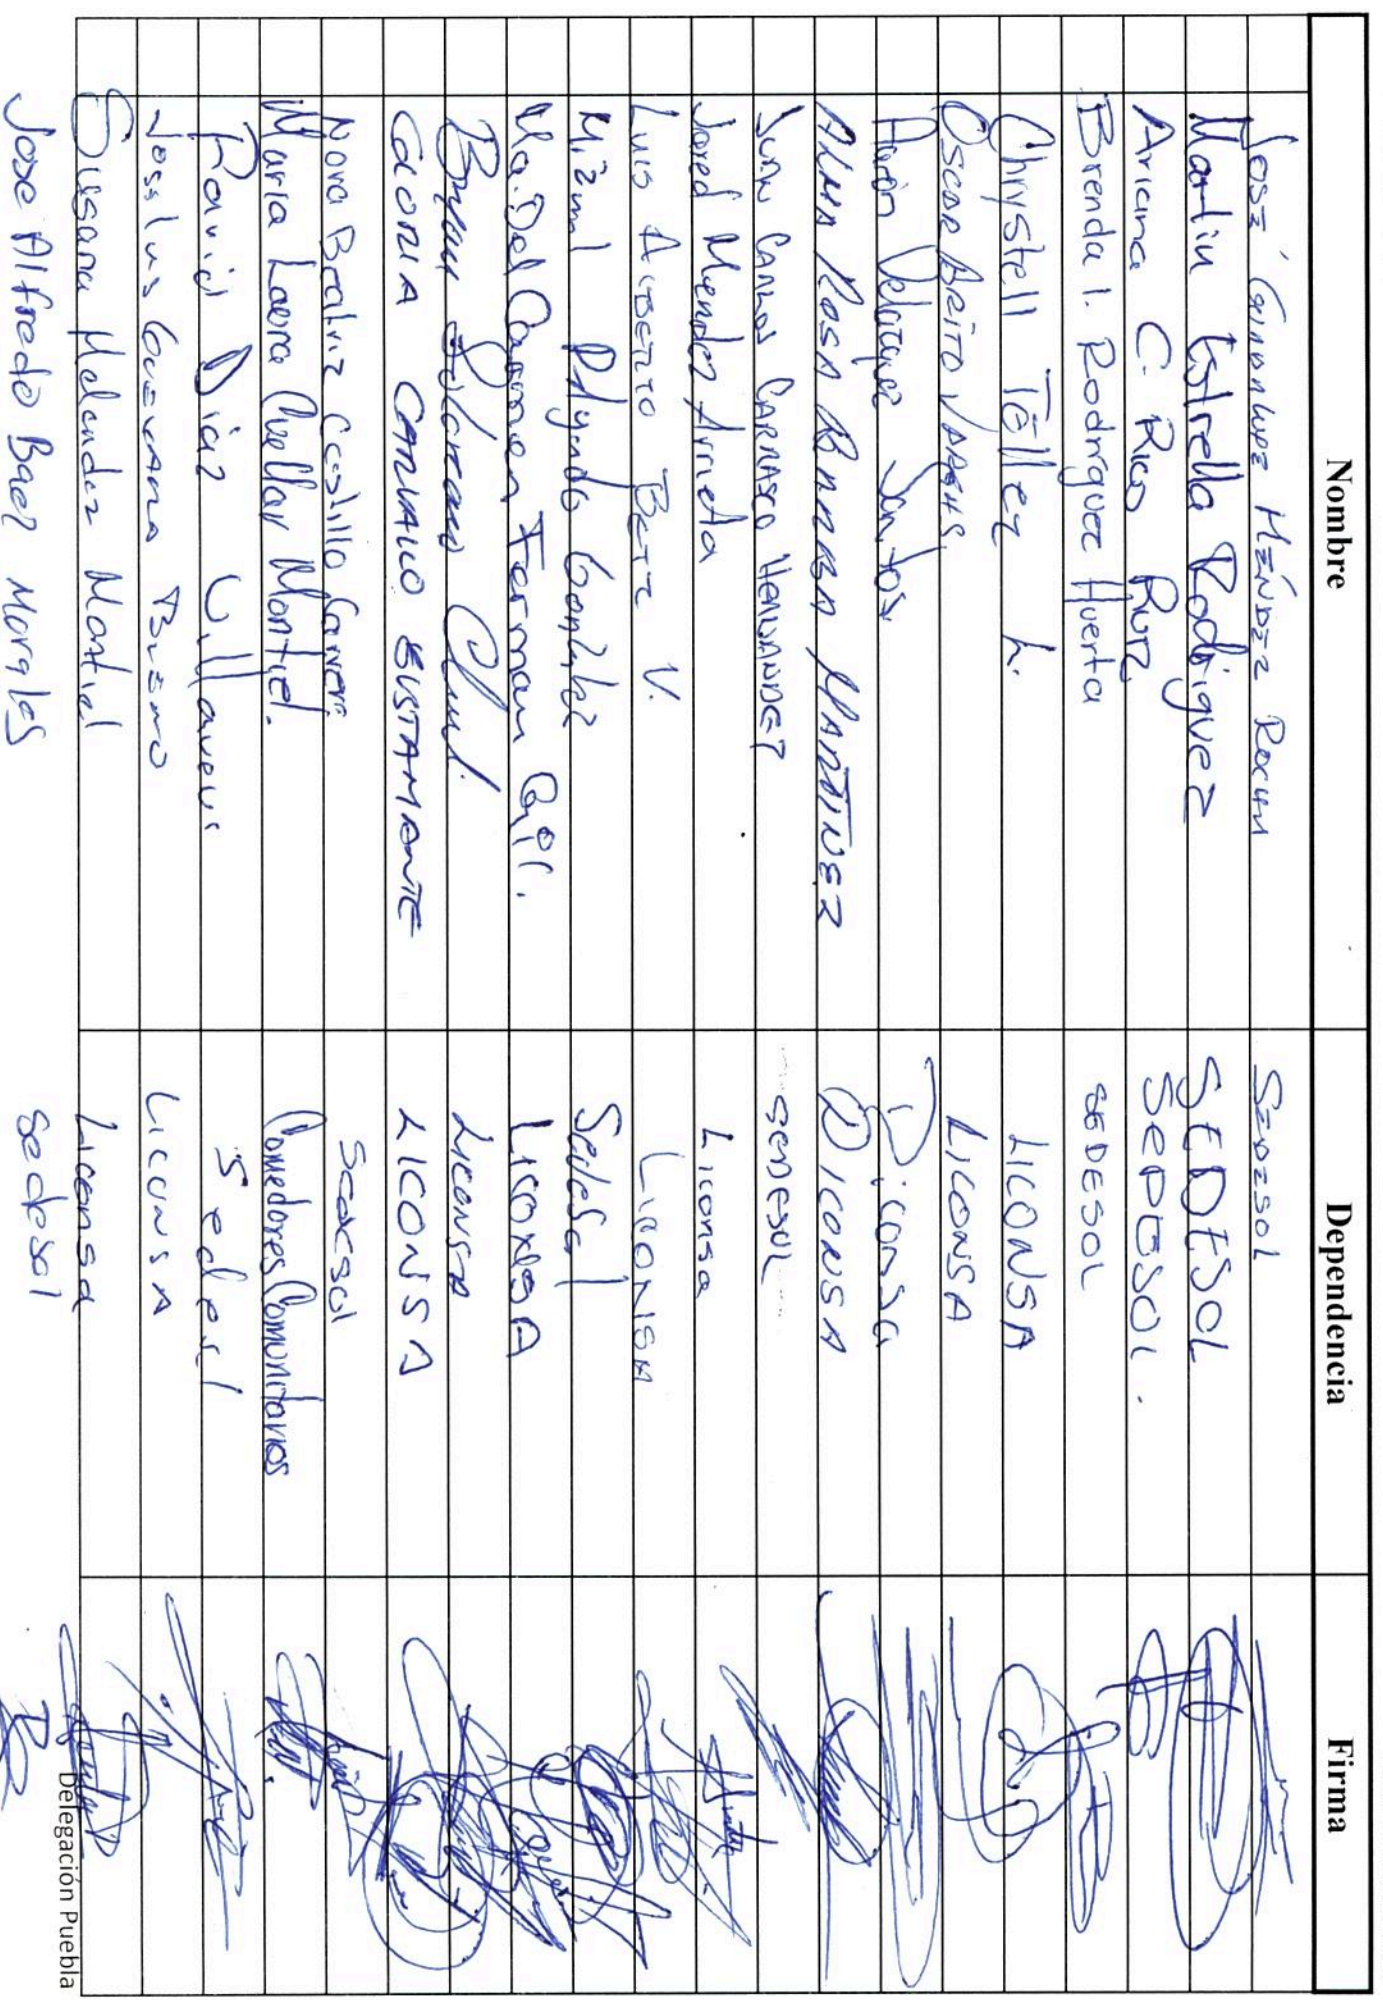 Nombre Dependencia Firma
José Guadalupe Méndez Rocha SEDESOL
Marliu Estrella Rodriguez SEDESOL
Ariana C. Rico Ruiz. SEDESOL.
Brenda I. Rodríguez Huerta SEDESOL
Chrystell Téllez L. LICONSA
Oscar Brito Vargas. LICONSA
Aarón Santos Diconsa
ALMA ROSA MARTINEZ DICONSA
JUAN CARLOS CARRASCO HERNANDEZ SEDESOL
Jared Mendez Arrieta Liconsa
LUIS ALBERTO V. LICONSA
Sedesol
Ma. Del Carmen LICONSA
Liconsa
GLORIA CARVALLO BUSTAMANTE LICONSA
Nora Beatriz Castillo Sedesol
Maria Laura Cuellar Montiel. Comedores Comunitarios
David Diaz Villanueva Sedesol
LICONSA
Susana Melendez Montiel Liconsa
Jose Alfredo Baez Morales Sedesol
Delegación Puebla